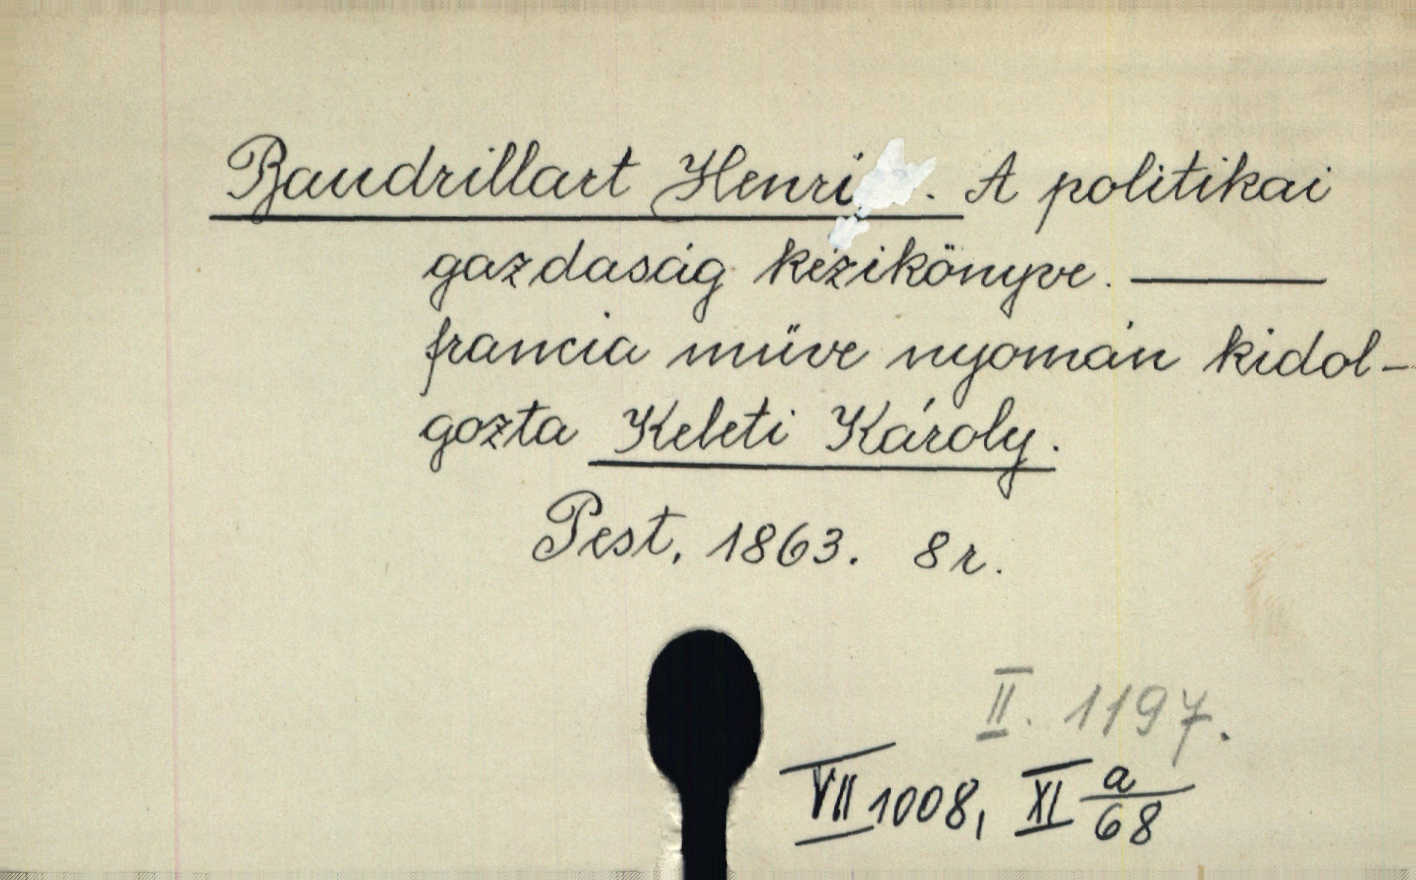 Baudrillart Henri. A politikai
gazdaság kézikönyve. ———
francia müve nyomán kidol-
gozta Keleti Károly.
Pest, 1863. 8 r.
II. 1197.
VII 1008, XI a/68